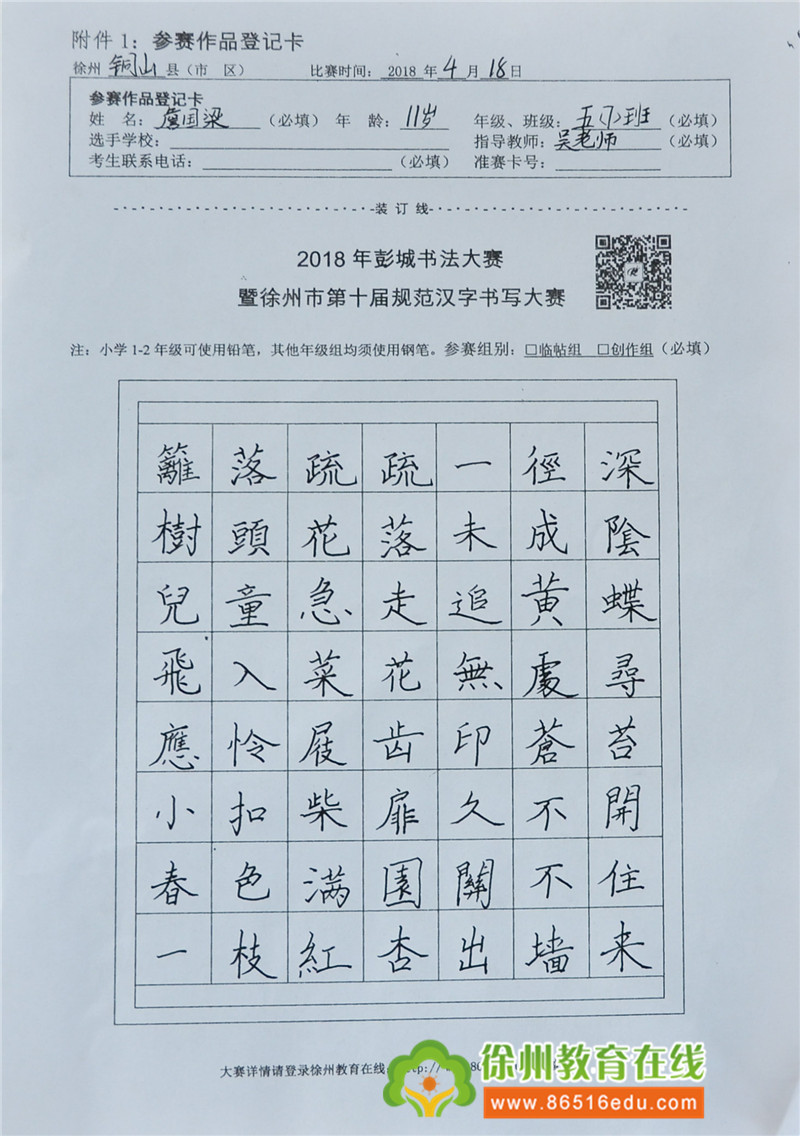 附件1：参赛作品登记卡
徐州 铜山 县（市 区） 比赛时间： 2018 年 4 月 18 日
参赛作品登记卡
姓 名： 虞国梁 （必填） 年 龄： 11岁 年级、班级： 五（7）班 （必填）
选手学校： 指导教师： 吴老师 （必填）
考生联系电话： （必填） 准赛卡号：
装 订 线
2018 年彭城书法大赛
暨徐州市第十届规范汉字书写大赛
注：小学1-2年级可使用铅笔，其他年级组均须使用钢笔。参赛组别：□临帖组 □创作组（必填）
籬落疏疏一徑深
樹頭花落未成陰
兒童急走追黄蝶
飛入菜花無處尋
應怜屐齿印蒼苔
小扣柴扉久不開
春色满園關不住
一枝紅杏出墙来
大赛详情请登录徐州教育在线
徐州教育在线
www.86516edu.com